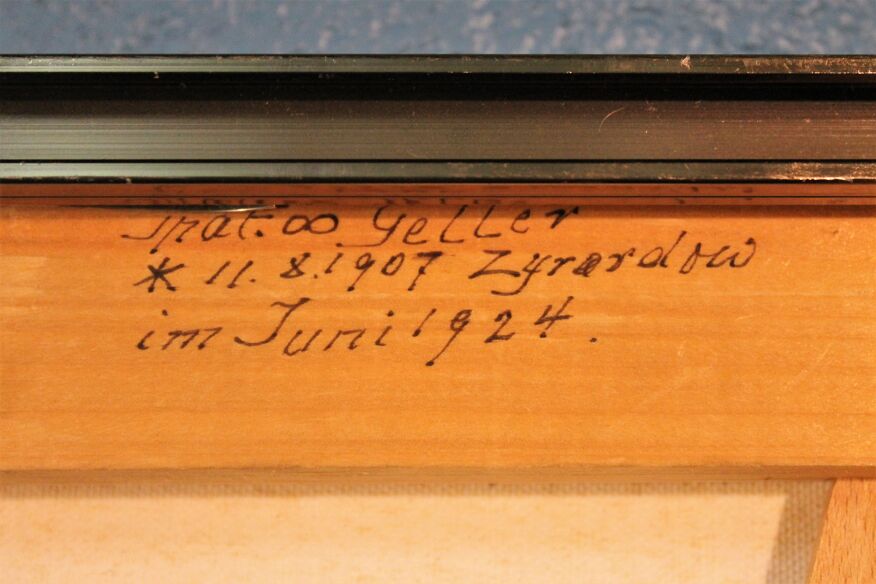 ∞ Geller
* 11.8.1907 Zyrardow
im Juni 1924.